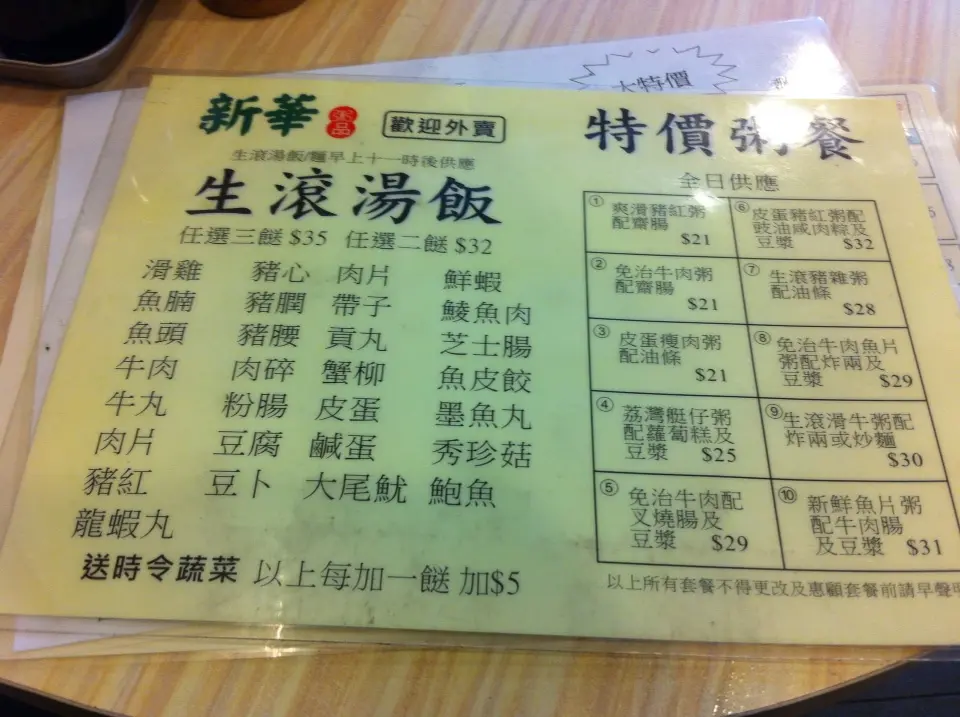 大特價
新華
粥品
歡迎外賣
生滾湯飯/麵早上十一時後供應
生滾湯飯
任選三餸 $35 任選二餸 $32
滑雞 豬心 肉片 鮮蝦
魚腩 豬膶 帶子 鯪魚肉
魚頭 豬腰 貢丸 芝士腸
牛肉 肉碎 蟹柳 魚皮餃
牛丸 粉腸 皮蛋 墨魚丸
肉片 豆腐 鹹蛋 秀珍菇
豬紅 豆卜 大尾魷 鮑魚
龍蝦丸
送時令蔬菜 以上每加一餸 加$5
特價粥餐
全日供應
① 爽滑豬紅粥
配齋腸
$21
② 免治牛肉粥
配齋腸
$21
③ 皮蛋瘦肉粥
配油條
$21
④ 荔灣艇仔粥
配蘿蔔糕及
豆漿 $25
⑤ 免治牛肉配
叉燒腸及
豆漿 $29
⑥ 皮蛋豬紅粥配
豉油咸肉粽及
豆漿 $32
⑦ 生滾豬雜粥
配油條
$28
⑧ 免治牛肉魚片
粥配炸兩及
豆漿 $29
⑨ 生滾滑牛粥配
炸兩或炒麵
$30
⑩ 新鮮魚片粥
配牛肉腸
及豆漿 $31
以上所有套餐不得更改及惠顧套餐前請早聲明